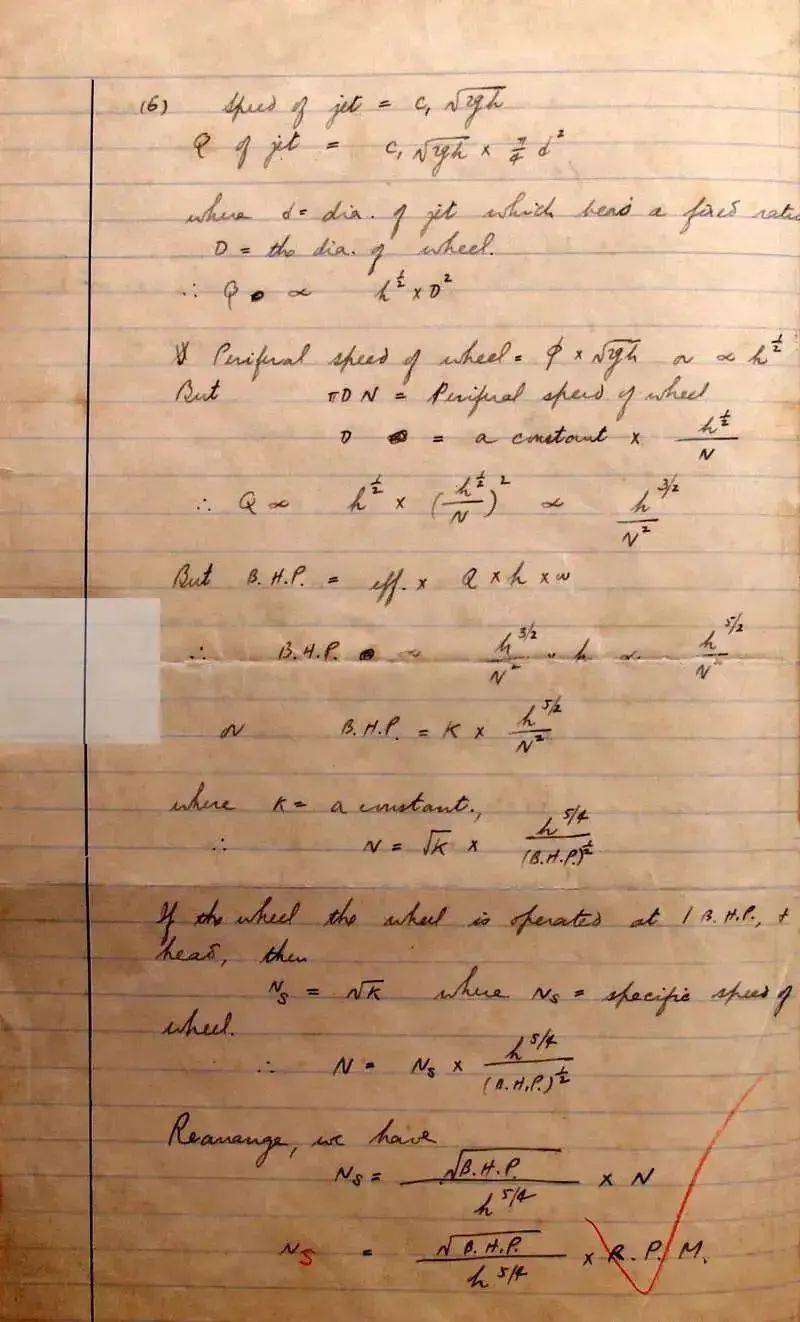 (6) Speed of jet = c₁ √2gh
Q of jet = c₁ √2gh × π/4 d²
where d = dia. of jet which bears a fixed ratio
D = the dia. of wheel.
∴ Q ∝ h^½ × D²
Periferal speed of wheel = φ × √2gh or ∝ h^½
But πDN = Periferal speed of wheel
D = a constant × h^½/N
∴ Q ∝ h^½ × (h^½/N)² ∝ h^3/2/N²
But B.H.P. = eff. × Q × h × w
∴ B.H.P. ∝ h^3/2/N² × h ∝ h^5/2/N²
or B.H.P. = K × h^5/2/N²
where K = a constant.,
∴ N = √K × h^5/4/(B.H.P.)^½
If the wheel the wheel is operated at 1 B.H.P., +
head, then
N_S = √K where N_S = specific speed of
wheel.
∴ N = N_S × h^5/4/(B.H.P.)^½
Rearange, we have
N_S = √B.H.P./h^5/4 × N
N_S = √B.H.P./h^5/4 × R.P.M.